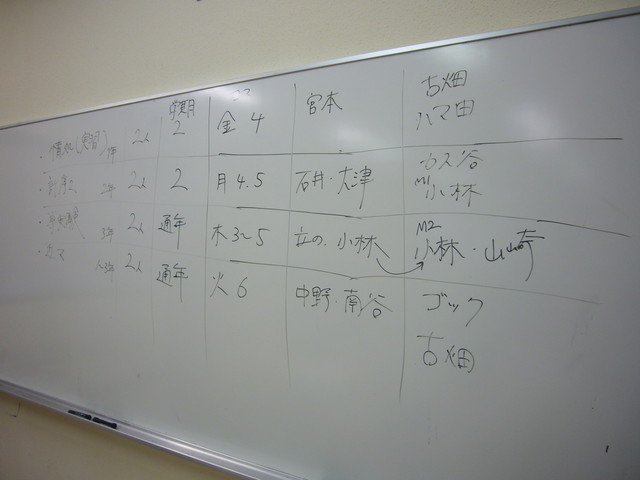 学期 コマ
古畑
・情処(実習) 1年 2人 2 金 4 宮本 ハマ田
カス谷
2年 2人 2 月 4.5 石井・大津 M1 小林
M2
3年 2人 通年 木 3〜5 立の、小林 小林・山崎
2人 通年 火 6 中野・南谷 ゴック
古畑